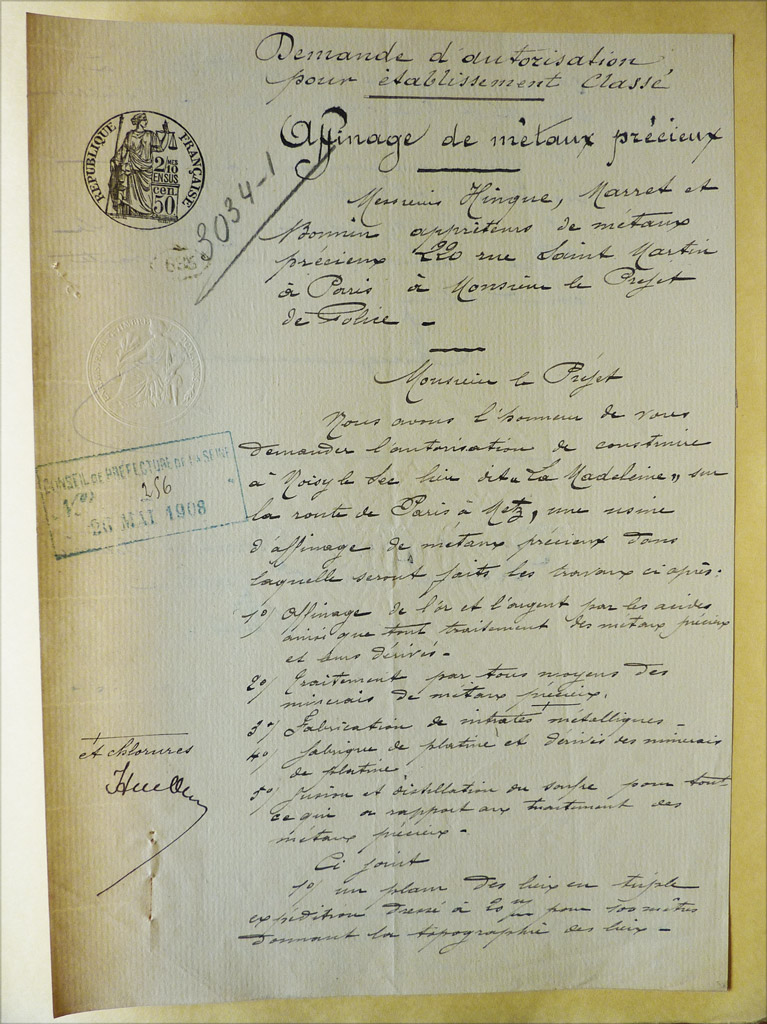 Demande d'autorisation
pour établissement Classé
Affinage de métaux précieux
RÉPUBLIQUE FRANÇAISE
2/10 EN SUS
50 cen
3034-1
Messieurs Hingue, Marret et
Bonnin apprêteurs de métaux
précieux 220 rue Saint Martin
à Paris à Monsieur le Préfet
de Police -
Monsieur le Préfet
Nous avons l'honneur de vous
demander l'autorisation de construire
à Noisy le Sec lieu dit "La Madeleine" sur
la route de Paris à Metz, une usine
d'affinage de métaux précieux dans
laquelle seront faits les travaux ci après:
1o/ Affinage de l'or et l'argent par les acides
ainsi que tout traitement des métaux précieux
et leurs dérivés -
2o/ Traitement par tous moyens des
minerais de métaux précieux.
3o/ Fabrication de nitrates + métalliques -
4o/ fabrique de platine et dérivés des minerais
de platine
5o/ fusion et distillation du soufre pour tout
ce qui a rapport aux traitement des
métaux précieux -
Ci joint
1o/ un plan des lieux en triple
expédition dressé à 20 m/m pour 100 mètres
donnant la topographie des lieux -
CONSEIL DE PREFECTURE DE LA SEINE
No 256
26 MAI 1908
+ et chlorures